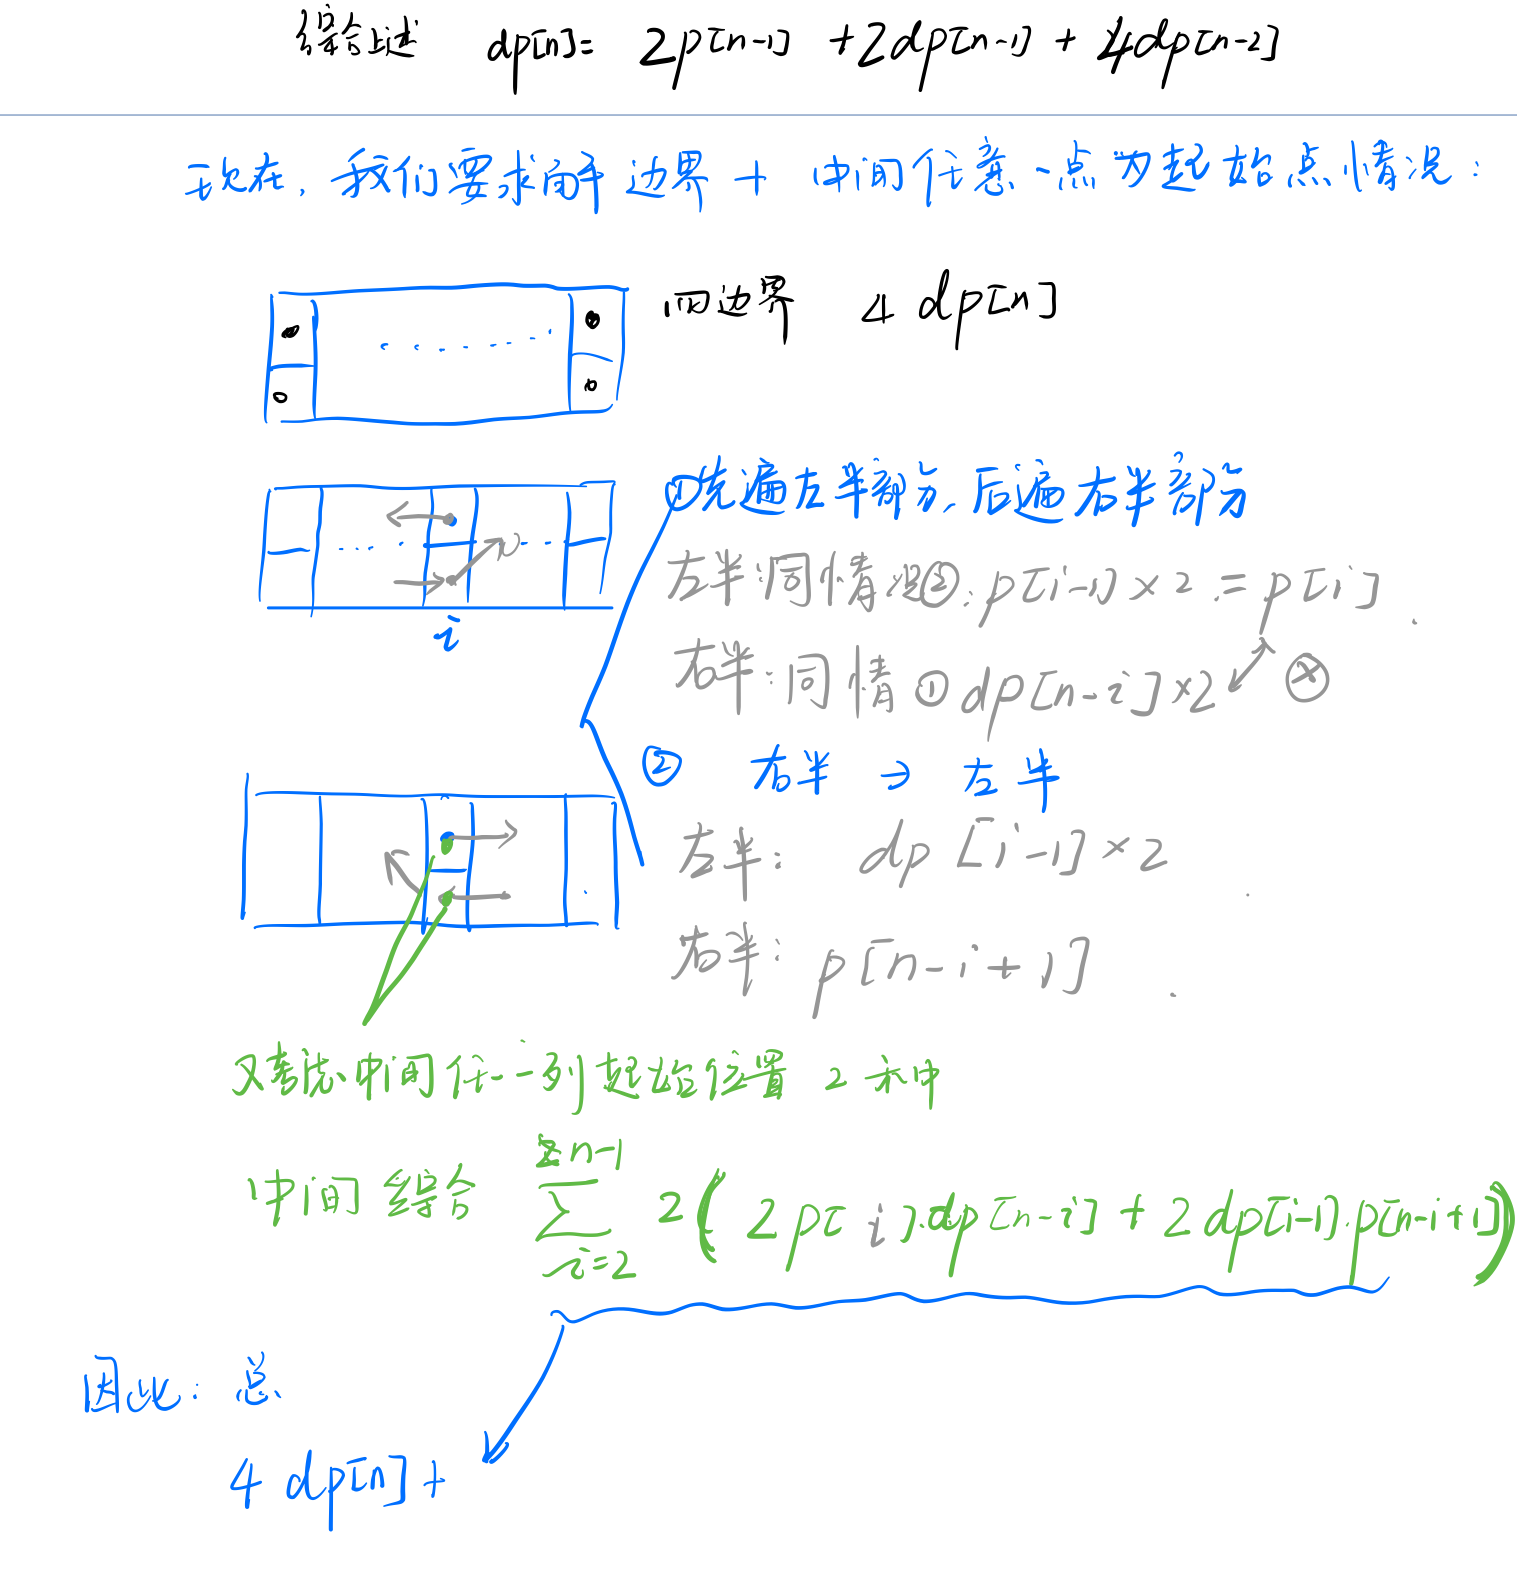 综合上述 dp[n]= 2p[n-1] +2dp[n-1] + 4dp[n-2]
现在, 我们要求解 边界 + 中间任意一点为起始点情况:
四边界 4 dp[n]
①先遍左半部分, 后遍右半部分
左半:同情况②: p[i-1] × 2 = p[i]
右半:同情① dp[n-i] ×2
i
② 右半 → 左半
左半: dp [i-1] × 2
右半: p[n-i+1]
又考虑中间任一列起始位置 2 种
中间 综合 ∑ n-1 i=2 2( 2p[i].dp[n-i] + 2dp[i-1].p[n-i+1])
因此: 总
4 dp[n] +